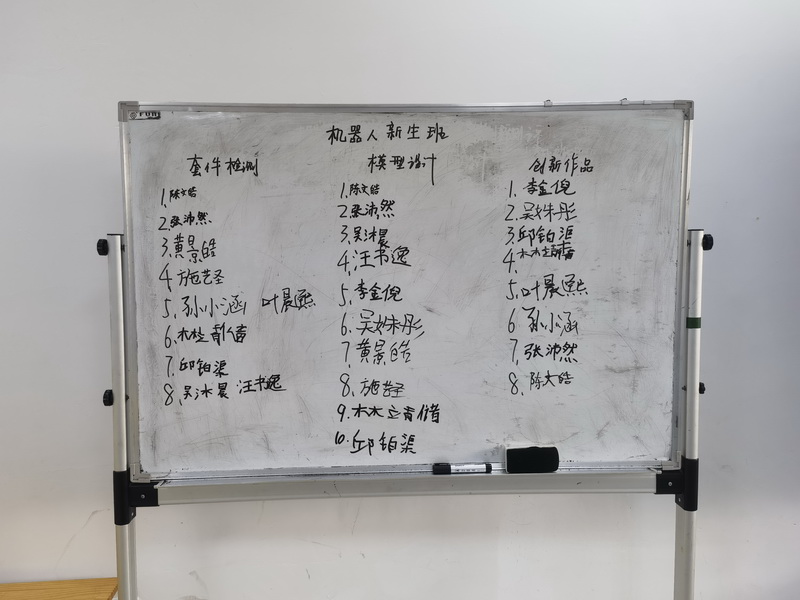 机器人新生班
套件检测
1.陈文皓
2.张沛然
3.黄景皓
4.施艺圣
5.孙小涵 叶晨熙
6.林
7.邱铂渠
8.吴冰晨 汪书逸
模型设计
1.陈文皓
2.张沛然
3.吴冰晨
4.汪书逸
5.李金倪
6.吴姝彤
7.黄景皓
8.施艺圣
9.林
10.邱铂渠
创新作品
1.李金倪
2.吴姝彤
3.邱铂渠
4.林
5.叶晨熙
6.孙小涵
7.张沛然
8.陈文皓